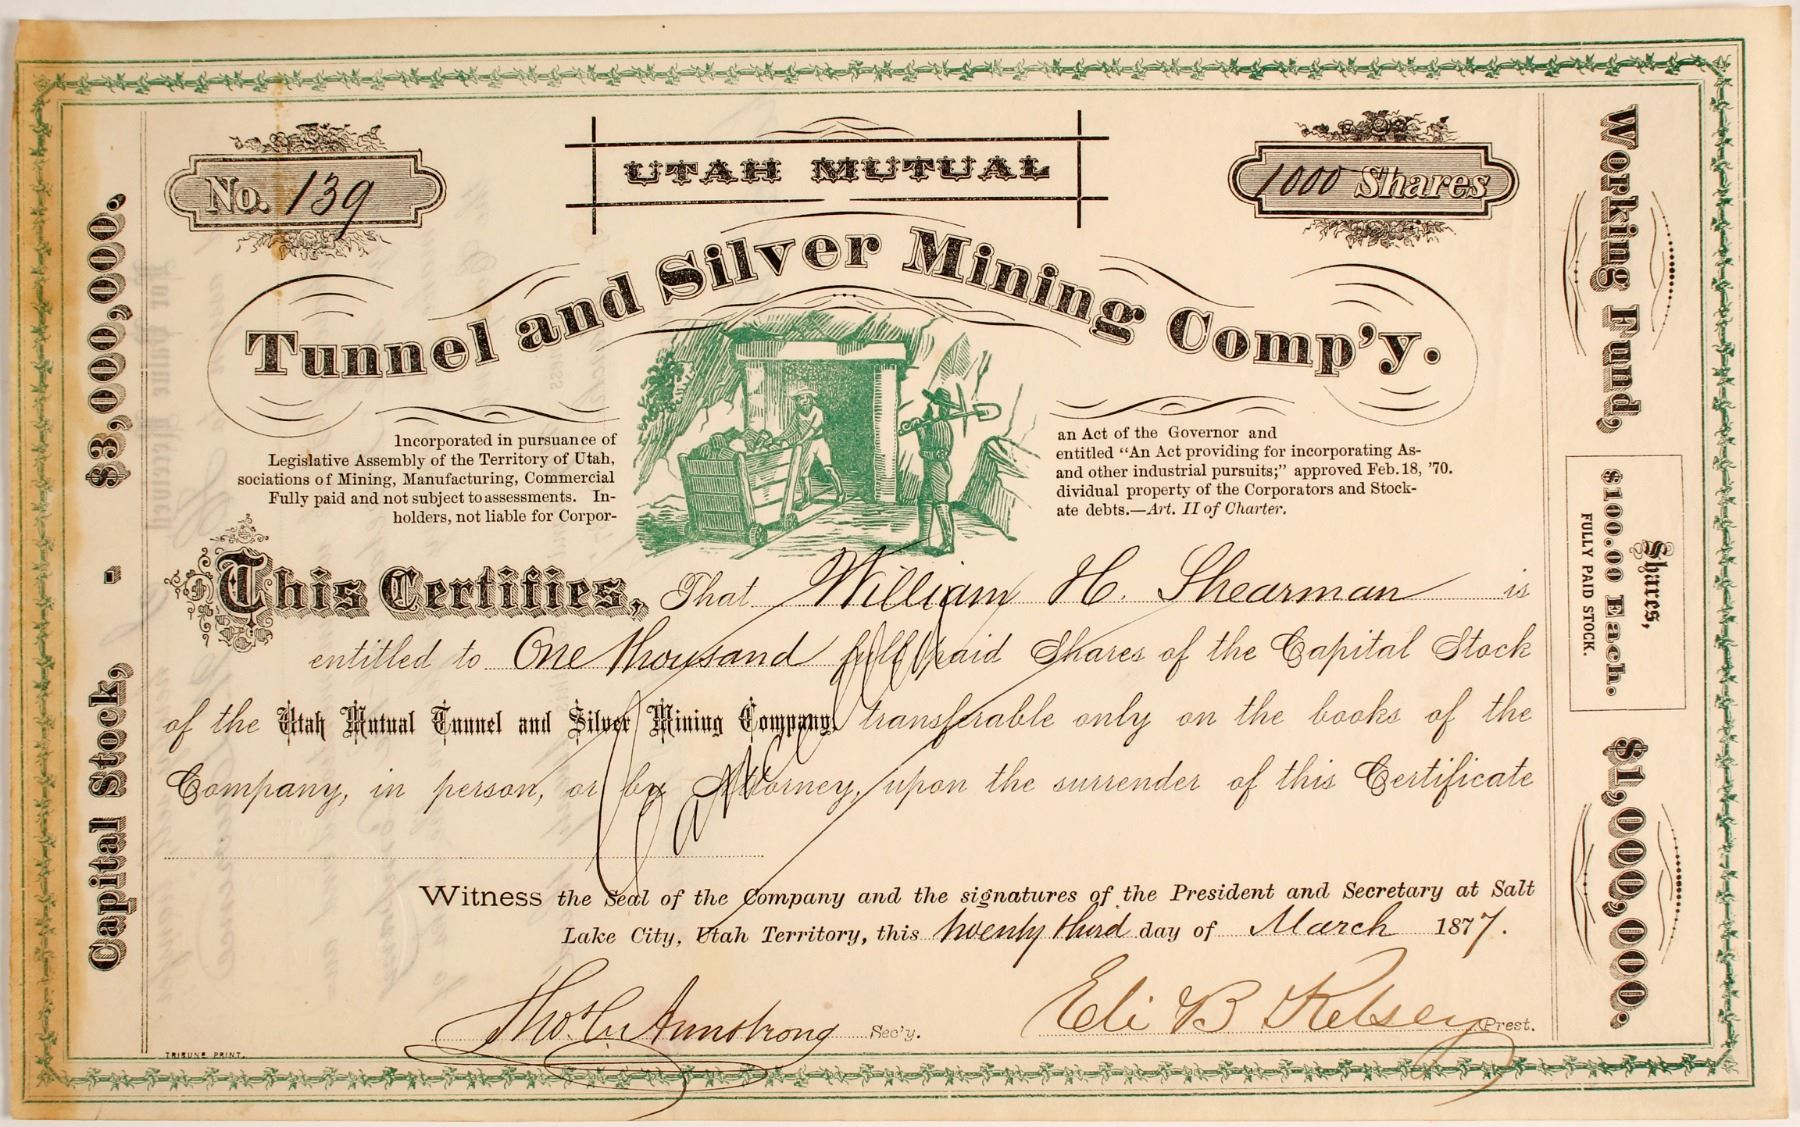 UTAH MUTUAL
No. 139
1000 Shares
Tunnel and Silver Mining Comp'y.
Incorporated in pursuance of an Act of the Governor and
Legislative Assembly of the Territory of Utah, entitled "An Act providing for incorporating As-
sociations of Mining, Manufacturing, Commercial and other industrial pursuits;" approved Feb. 18, '70.
Fully paid and not subject to assessments. In- dividual property of the Corporators and Stock-
holders, not liable for Corpor- ate debts.—Art. II of Charter.
This Certifies, That William H. Shearman is
entitled to One Thousand full paid Shares of the Capital Stock
of the Utah Mutual Tunnel and Silver Mining Company, transferable only on the books of the
Company, in person, or by Attorney, upon the surrender of this Certificate
Witness the Seal of the Company and the signatures of the President and Secretary at Salt
Lake City, Utah Territory, this twenty third day of March 1877.
Thos. C. Armstrong Sec'y.
Eli B Kelsey Prest.
TRIBUNE PRINT.
Capital Stock, - $3,000,000.
Working Fund, $1,000,000.
Shares,
$100.00 Each.
FULLY PAID STOCK.